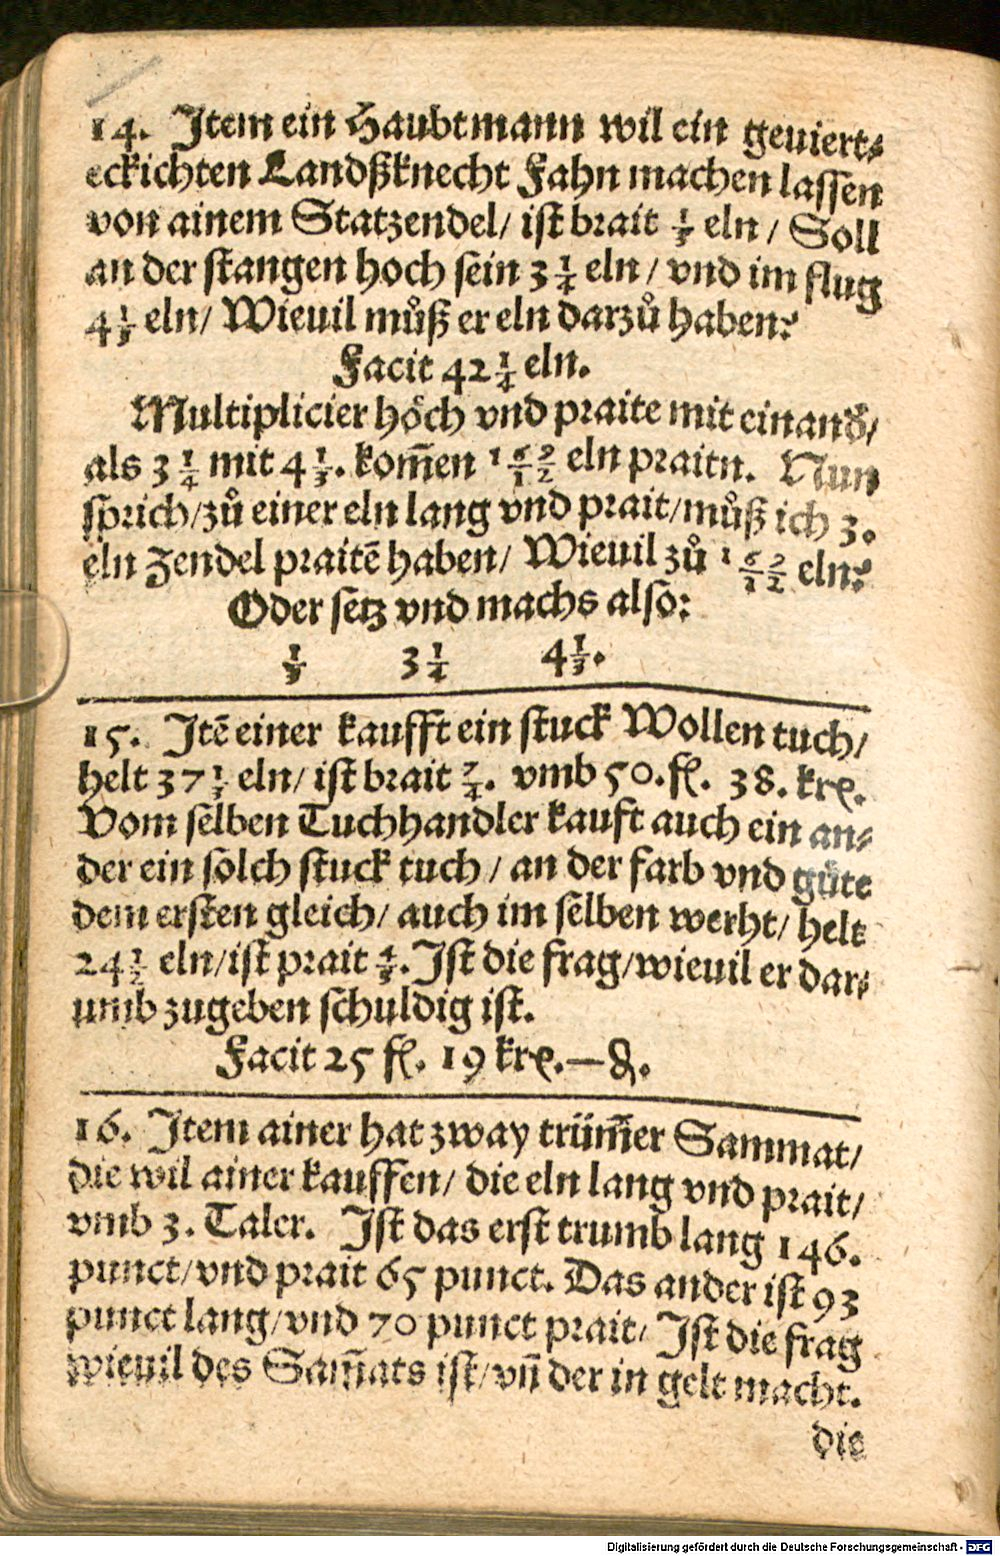 14. Item ein Haubtmann wil ein geuiert⸗
eckichten Landßknecht Fahn machen lassen
von ainem Statzendel/ ist brait 1/3 eln/ Soll
an der stangen hoch sein 3 1/4 eln/ vnd im flug
4 1/3 eln/ Wieuil můß er eln darzů haben?
Facit 42 1/4 eln.
Multiplicier höch vnd praite mit einand̕/
als 3 1/4 mit 4 1/3. kom̄en 169/12 eln praitn. Nun
sprich/zů einer eln lang vnd prait/můß ich 3.
eln Zendel praitē haben/ Wieuil zů 169/12 eln?
Oder setz vnd machs also:
1/3 3 1/4 4 1/3.
15. Itē einer kaufft ein stuck Wollen tuch/
helt 37 1/3 eln/ ist brait 7/4. vmb 50. fl. 38. krꝭ.
Vom selben Tuchhandler kauft auch ein an⸗
der ein solch stuck tuch/ an der farb vnd güte
dem ersten gleich/ auch im selben werht/ helt
24 1/2 eln/ist prait 4/3. Ist die frag/wieuil er dar⸗
umb zugeben schuldig ist.
Facit 25 fl. 19 krꝭ.—₰.
16. Item ainer hat zway trüm̄er Sammat/
die wil ainer kauffen/ die eln lang vnd prait/
vmb 3. Taler. Ist das erst trumb lang 146.
punct/vnd prait 65 punct. Das ander ist 93
punct lang/vnd 70 punct prait/ Ist die frag
wieuil des Sam̄ats ist/vn̄ der in gelt macht.
die
Digitalisierung gefördert durch die Deutsche Forschungsgemeinschaft - DFG